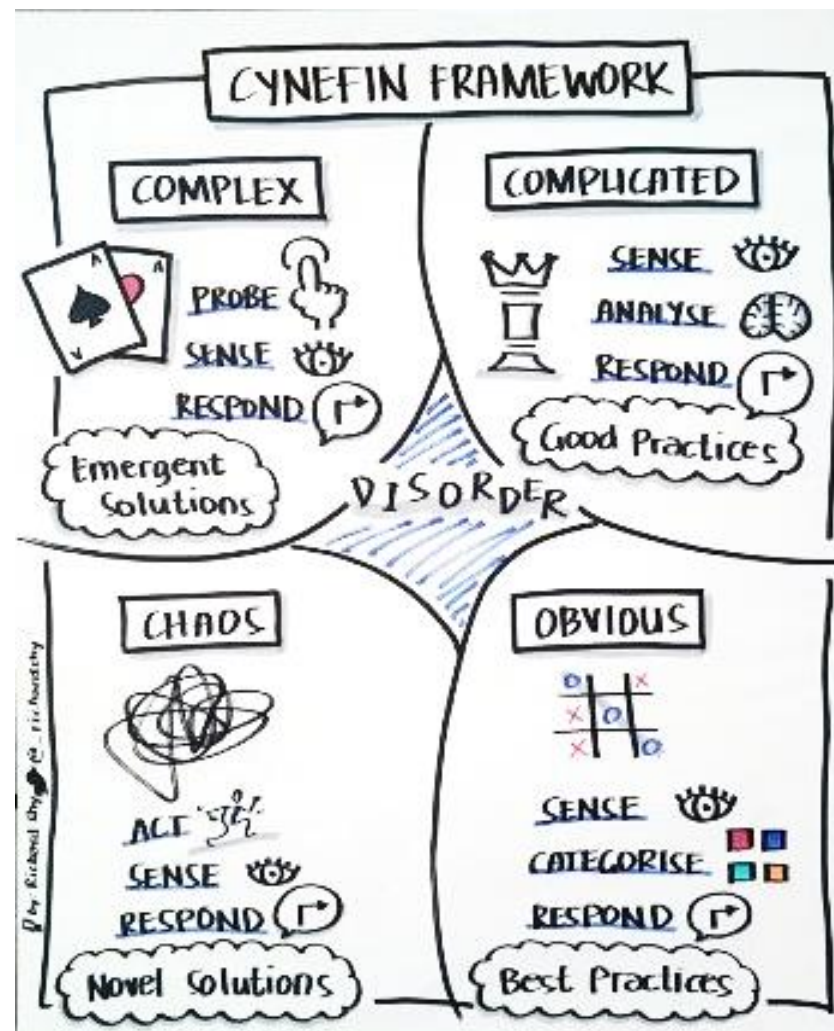 CYNEFIN FRAMEWORK
COMPLEX
A
A
V
PROBE
SENSE
RESPOND
Emergent
Solutions
COMPLICATED
SENSE
ANALYSE
RESPOND
Good Practices
DISORDER
CHAOS
ACT
SENSE
RESPOND
Novel Solutions
OBVIOUS
O X
X O
X O
SENSE
CATEGORISE
RESPOND
Best Practices
by Richard @_richardthy